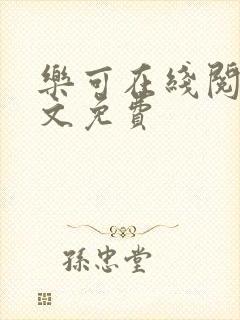 樂可在綫閱
文免費
孫忠堂